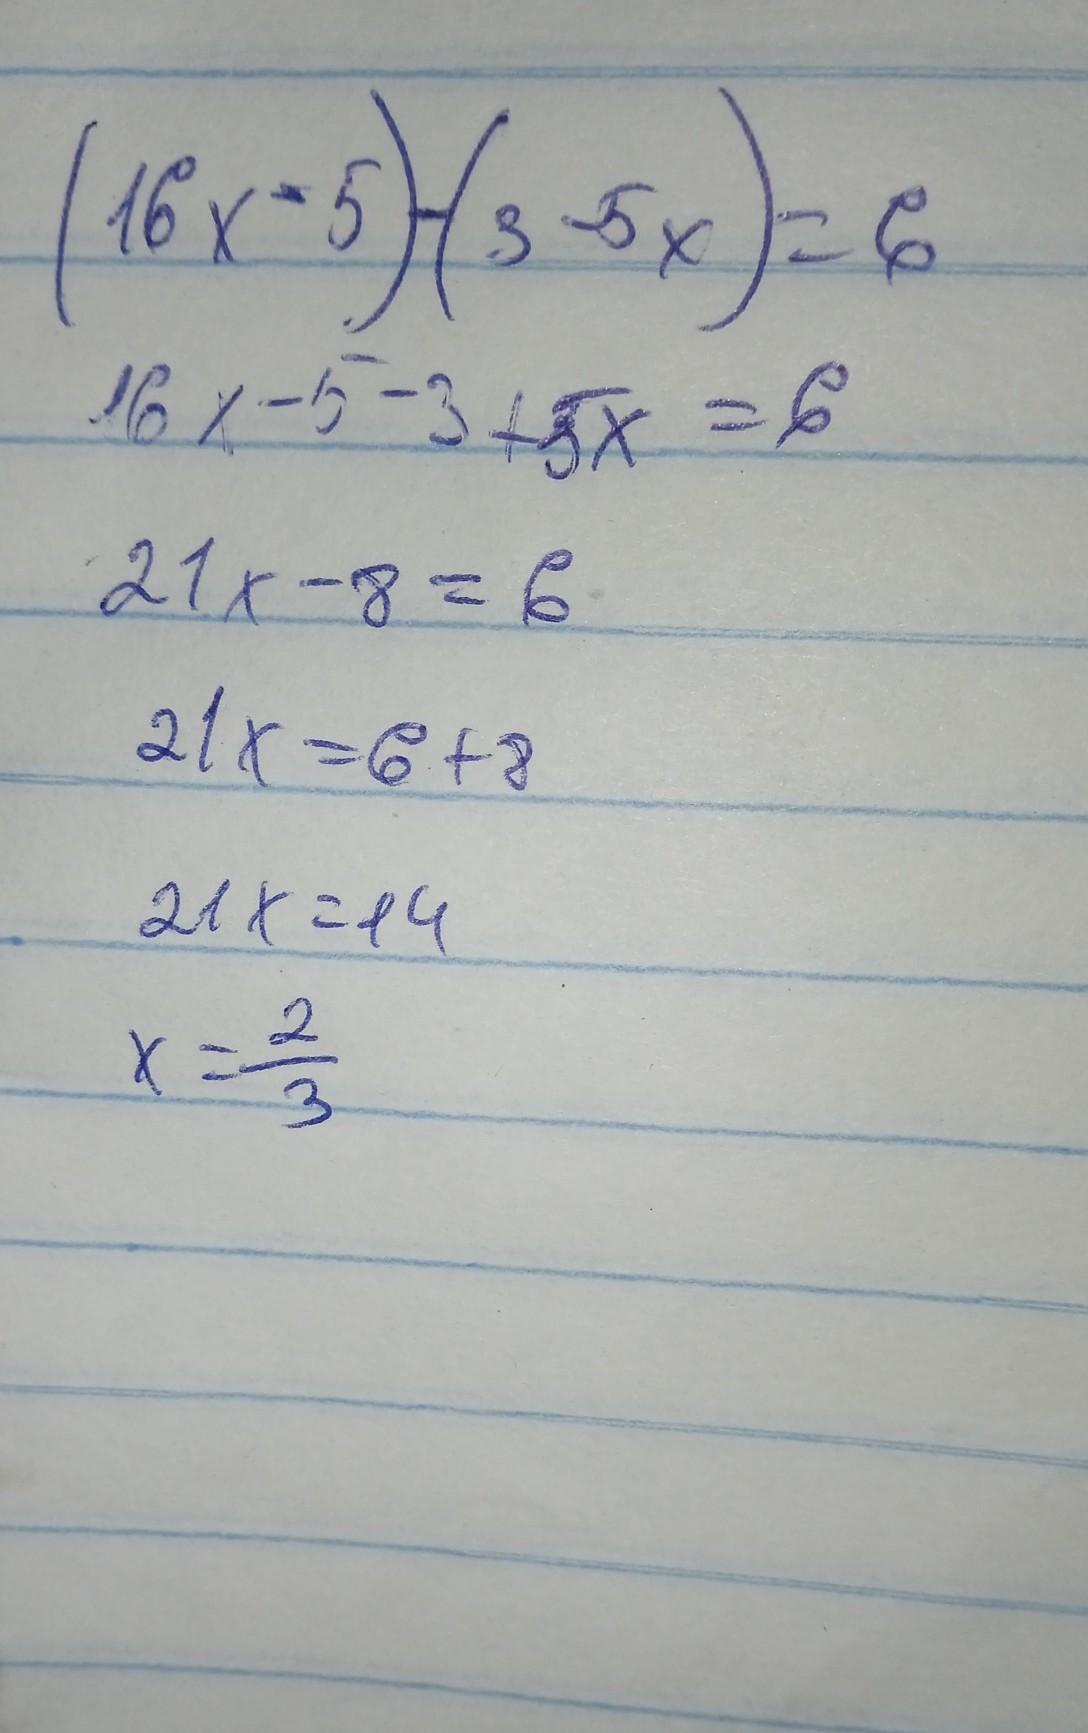 (16x-5)-(3-5x)=6
16x-5-3+5x=6
21x-8=6
21x=6+8
21x=14
x=2/3